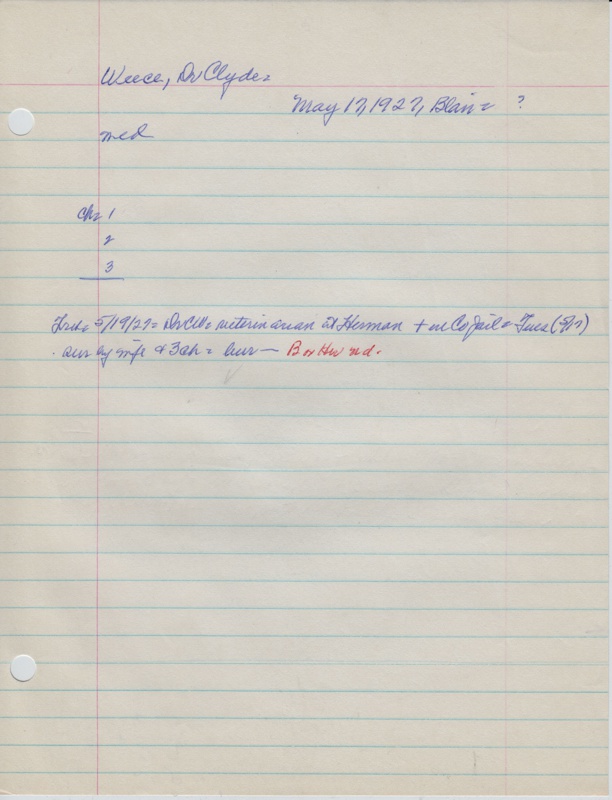 Weece, Dr Clyde =
May 17, 1927, Blair = ?
med
ch = 1
2
3
5/19/27 = Dr CW = veterinarian at Herman + in Co Jail = Tues (5/17)
sur by wife & 3 ch = bur — B or Hn nd.